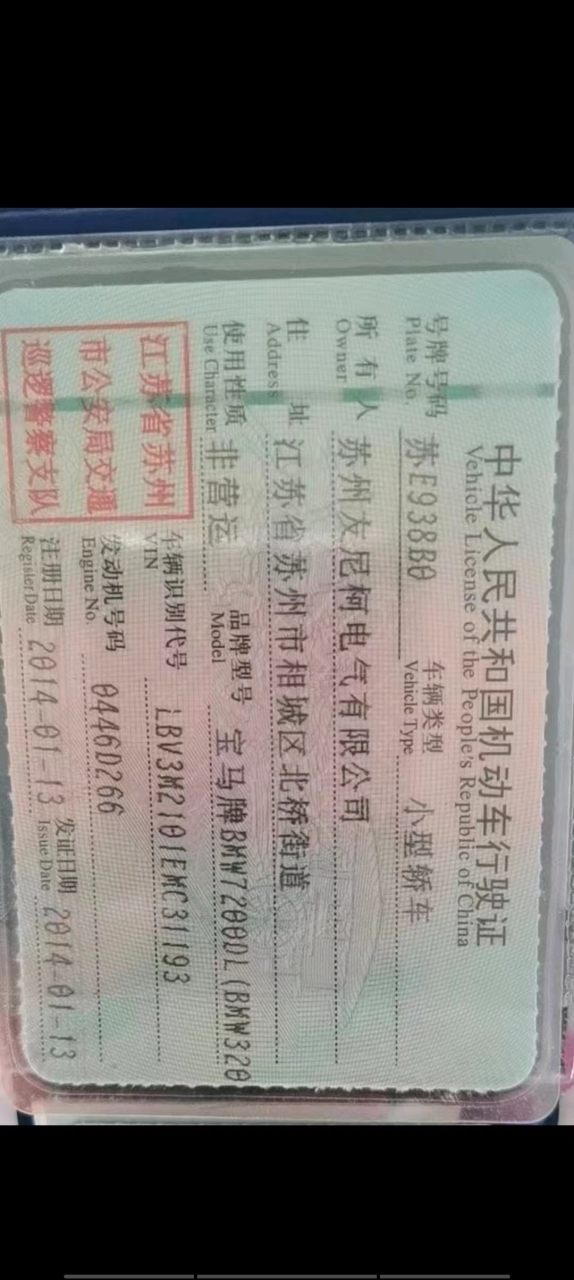 中华人民共和国机动车行驶证
Vehicle License of the People's Republic of China
号牌号码 苏E938B0 车辆类型 小型轿车
Plate No. Vehicle Type
所有人 苏州友尼柯电气有限公司
Owner
住址 江苏省苏州市相城区北桥街道
Address
使用性质 非营运 品牌型号 宝马牌BMW7200DL(BMW320
Use Character Model
江苏省苏州
市公安局交通
巡逻警察支队
车辆识别代号 LBV3M2101EMC31193
VIN
发动机号码 0446D266
Engine No.
注册日期 2014-01-13 发证日期 2014-01-13
Register Date Issue Date